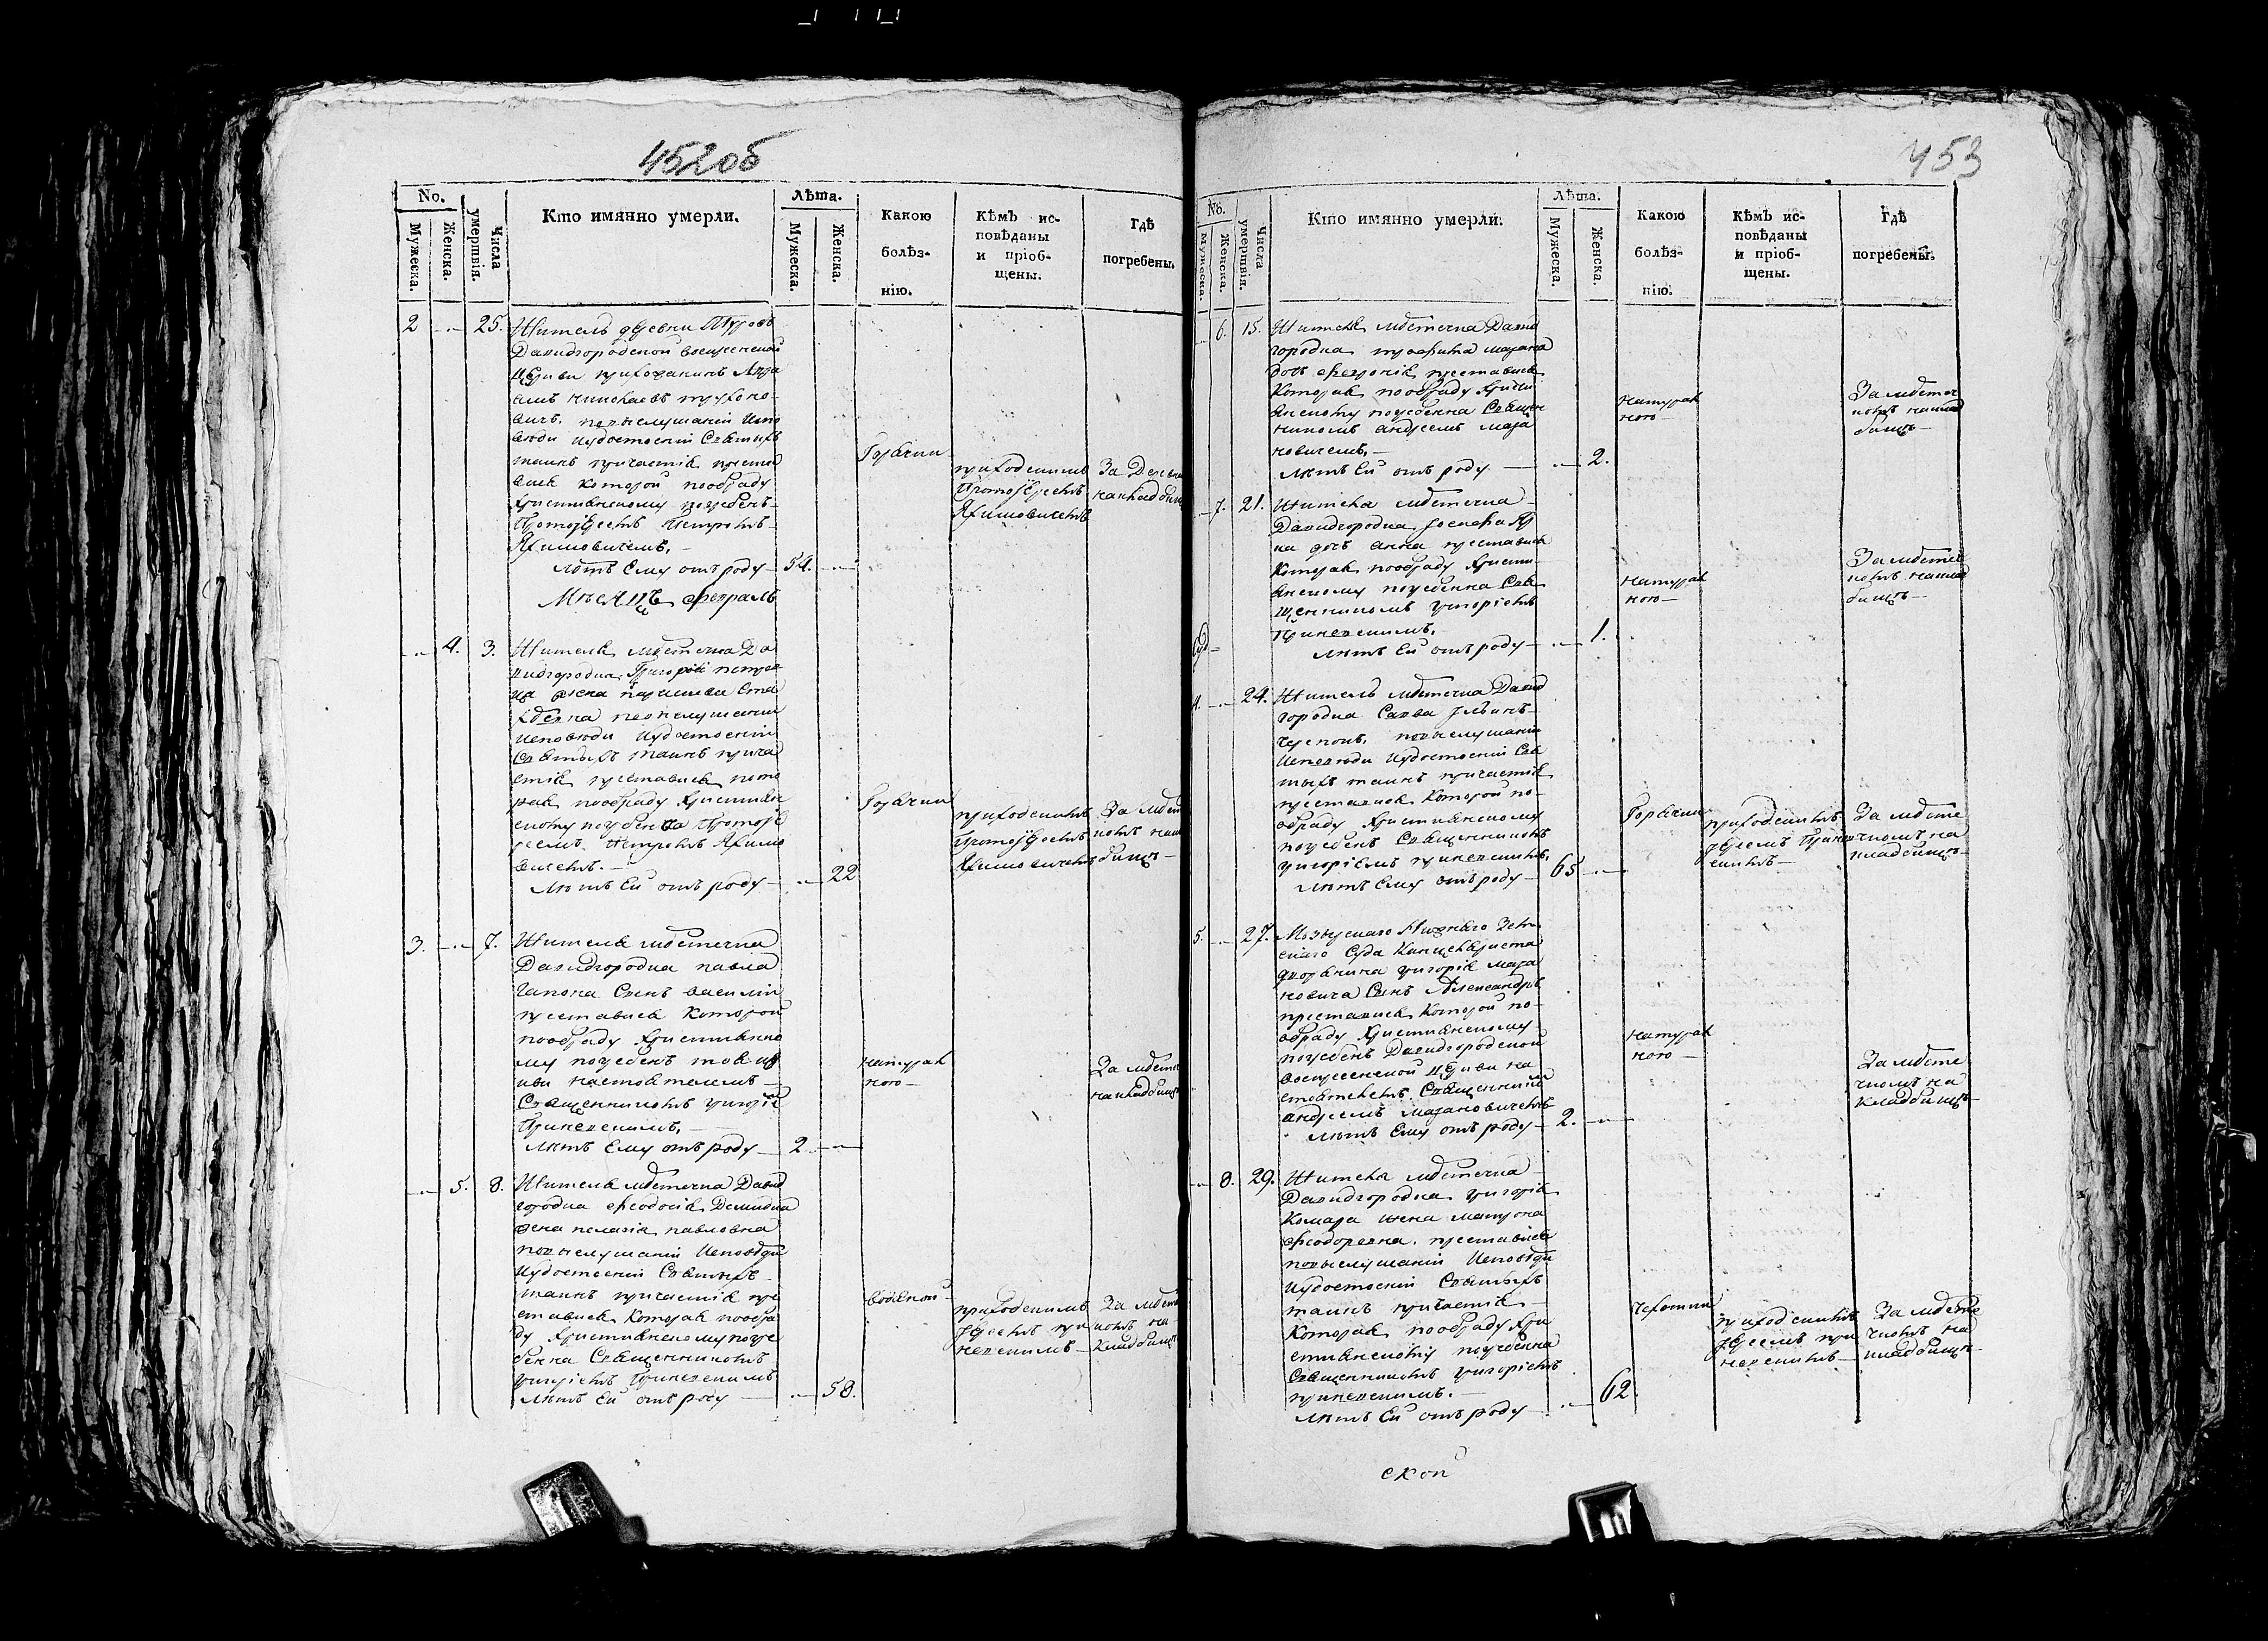 452об
No.
Мужеска.
Женска.
Числа умертвія.
Кто имянно умерли.
Лѣта.
Мужеска.
Женска.
Какою
болѣз-
нію.
Кѣмъ ис-
повѣданы
и пріоб-
щены.
Гдѣ
погребены.
2 25. Житель деревни
Давидгородской воскресенской
церкви прихожанинъ
по выслушаніи испо
веди и удостоеніи Святыхъ
таинъ причастія престав
ися которой по обряду
Християнскому погребенъ
Протоіереемъ Петромъ
Якимовичемъ.
Лѣтъ Ему отъ роду 54.
Горячки
приходскимъ
Протоіереемъ
Якимовичемъ
За Дерев
на кладбищ
Мѣсяцъ февраль
4. 3. Жителя мѣстечка Да
видгородка Григорія
жена
по выслушаніи
исповеди и удостоеніи
Святыхъ таинъ прича
стія преставися кото
рая по обряду Християн
скому погребена Протоіе
реемъ Петромъ Якимо
вичемъ.
Лѣтъ Ей отъ роду 22
Горячки
приходскимъ
Протоіереемъ
Якимовичемъ
За мѣст
комъ клад
бищѣ
3. 7. Жителя мѣстечка
Давидгородка павла
Гапона Сынъ василій
преставися которой
по обряду Християнско
му погребенъ тоя цер
кви настоятелемъ
Священникомъ григорі
Приневскимъ.
Лѣтъ Ему отъ роду 2
натурал
ною
За мѣсте
на кладбищѣ
5. 8. Жителя мѣстечка Давид
городка феодосія Демидка
жена пелагія павловна
по выслушаніи исповѣди
и удостоеніи Святыхъ
таинъ причастія пре
ставися которая по обря
ду Християнскому погре
бена Священникомъ
григоріемъ Приневскимъ
Лѣтъ Ей отъ роду 58.
приходскимъ
іереемъ при
невскимъ
За мѣсте
комъ на
кладбищѣ
453
No.
Мужеска.
Женска.
Числа умертвія.
Кто имянно умерли.
Лѣта.
Мужеска.
Женска.
Какою
болѣз-
нію.
Кѣмъ ис-
повѣданы
и пріоб-
щены.
Гдѣ
погребены.
6. 15. Жителя мѣстечка Давид
городка
дочь преставися
которая по обряду Христи
янскому погребена Священ
никомъ андреемъ мара
новичемъ.
Лѣтъ Ей отъ роду 2.
натурал
ною
За мѣстеч
комъ на клад
бищѣ
7. 21. Жителя мѣстечка
Давидгородка
дочь анна преставися
которая по обряду Христи
янскому погребенна Свя
щенникомъ григоріемъ
Приневскимъ.
Лѣтъ Ей отъ роду 1.
натурал
ною
За мѣстеч
комъ на клад
бищѣ
4. 24. Житель мѣстечка Давид
городка Савва
по выслушаніи
исповеди и удостоеніи Свя
тыхъ таинъ причастія
преставися которой по
обряду Християнскому
погребенъ Священникомъ
григоріемъ приневскимъ.
Лѣтъ Ему отъ роду 65
Горячки
приходскимъ
іереемъ Прине
вскимъ
За мѣсте
чкомъ на
кладбищѣ
5. 27. Мозырскаго Нижняго Зем
скаго Суда Канцеляриста
дворянина григорія Мара
новича Сынъ Александръ
преставися которой по
обряду Християнскому
погребенъ Давидгородской
воскресенской церкви на
стоятелемъ Священникомъ
андреемъ марановичемъ
Лѣтъ Ему отъ роду 2.
натурал
ною
За мѣсте
чкомъ на
кладбищѣ
8. 29. Жителя мѣстечка
Давидгородка григорія
Комара жена матрона
феодоровна преставися
по выслушаніи исповѣди
и удостоеніи Святыхъ
таинъ причастія
которая по обряду Хри
стиянскому погребена
Священникомъ григоріемъ
приневскимъ.
Лѣтъ Ей отъ роду 62
чехотки
приходскимъ
іереемъ при
невскимъ
За мѣсте
чкомъ на
кладбищѣ
ской